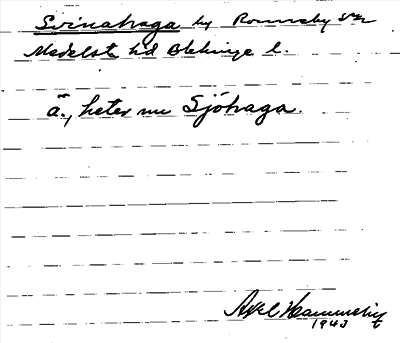 Svinahaga by Ronneby sn
Medelsta hd Blekinge l.
ä., heter nu Sjöhaga.
Axel
1943